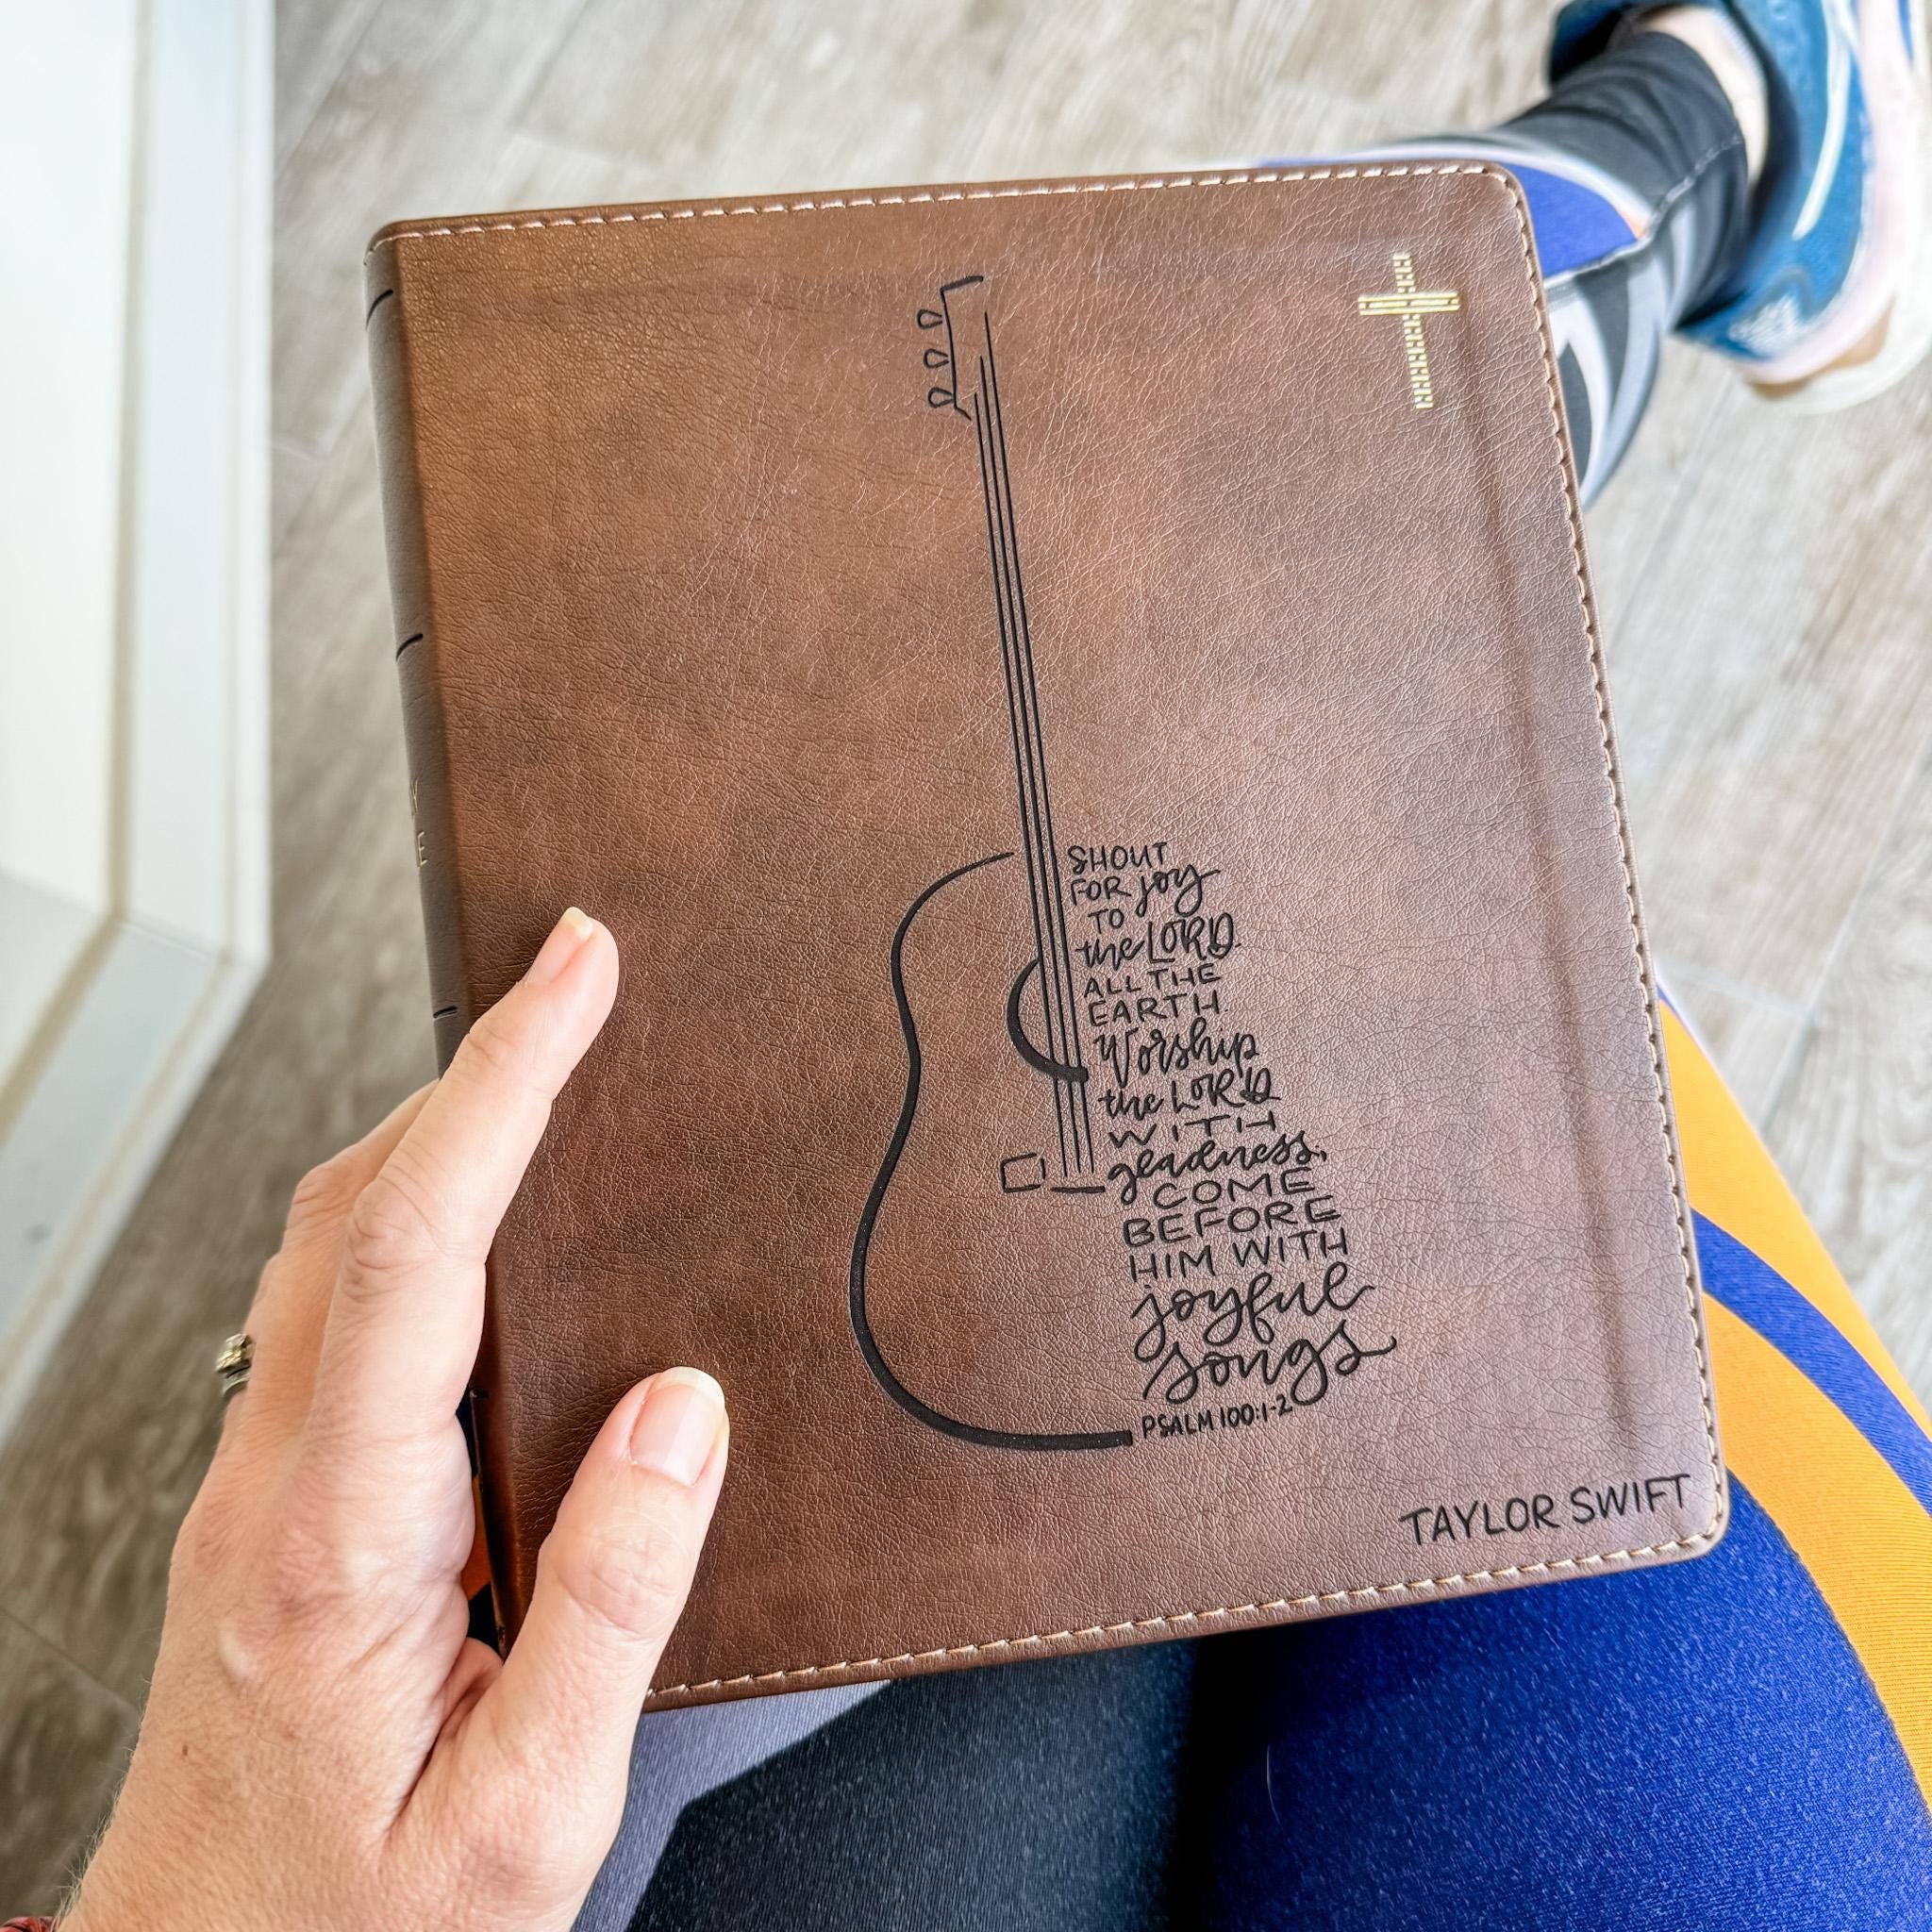 SHOUT
FOR joy
TO
the LORD
ALL THE
EARTH
Worship
the LORD
WITH
gladness,
COME
BEFORE
HIM WITH
joyful
songs
PSALM 100:1-2
TAYLOR SWIFT